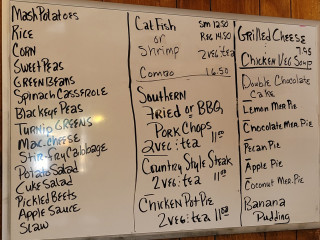 MashPotatoes
Rice
Corn
Sweet Peas
Green Beans
Spinach Casserole
Black eye Peas
Turnip Greens
Mac. Cheese
Stir-fry Cabbage
Potato Salad
Cuke Salad
Pickled Beets
Apple Sauce
Slaw
CatFish Sm 12.50
or Reg 14.50
Shrimp 2 veg & tea
Combo 16.50
Southern
Fried or BBQ
Pork Chops
2 veg & tea 11.50
Country Style Steak
2 veg & tea 11.50
Chicken Pot Pie
2 veg & tea 11.50
Grilled Cheese
7.95
Chicken Veg Soup
Double Chocolate
Cake
Lemon Mer. Pie
Chocolate Mer. Pie
Pecan Pie
Apple Pie
Coconut Mer. Pie
Banana
Pudding